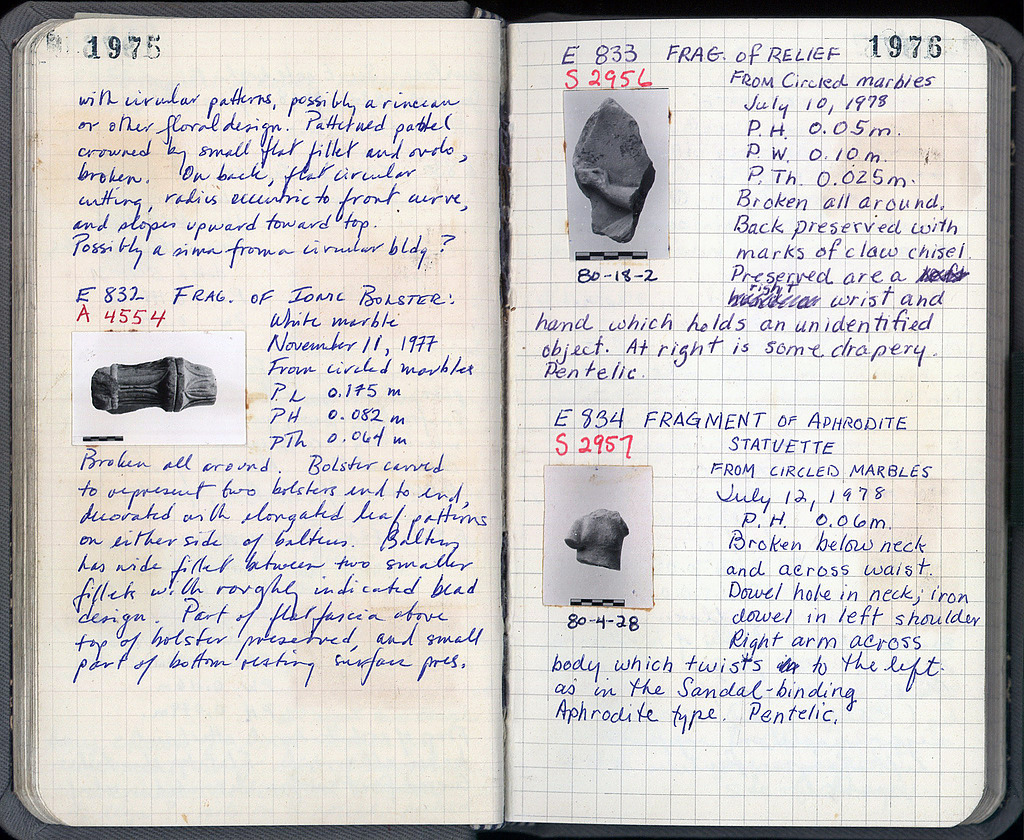 1975
with circular patterns, possibly a rinceau
or other floral design. Patterned pattel
crowned by small flat fillet and ovolo,
broken. On back, flat circular
cutting, radius eccentric to front curve,
and slopes upward toward top.
Possibly a sima from a circular bldg?
E 832 FRAG. OF IONIC BOLSTER:
A 4554
White marble
November 11, 1977
From circled marbles
P L 0.175 m
PH 0.082 m
pTh 0.064 m
Broken all around. Bolster carved
to represent two bolsters end to end,
decorated with elongated leaf patterns
on either side of balteus. Balteus
has wide fillet between two smaller
fillets with roughly indicated bead
design. Part of flat fascia above
top of bolster preserved, and small
part of bottom resting surface pres.
1976
E 833 FRAG. of RELIEF
S 2956
FROM Circled marbles
July 10, 1978
P.H. 0.05m.
P.W. 0.10m.
P.Th. 0.025m.
Broken all around.
Back preserved with
marks of claw chisel.
Preserved are a
right wrist and
hand which holds an unidentified
object. At right is some drapery.
Pentelic.
80-18-2
E 834 FRAGMENT OF APHRODITE
STATUETTE
S 2957
FROM CIRCLED MARBLES
July 12, 1978
P.H. 0.06m.
Broken below neck
and across waist.
Dowel hole in neck; iron
dowel in left shoulder
Right arm across
body which twists to the left.
as in the Sandal-binding
Aphrodite type. Pentelic.
80-4-28